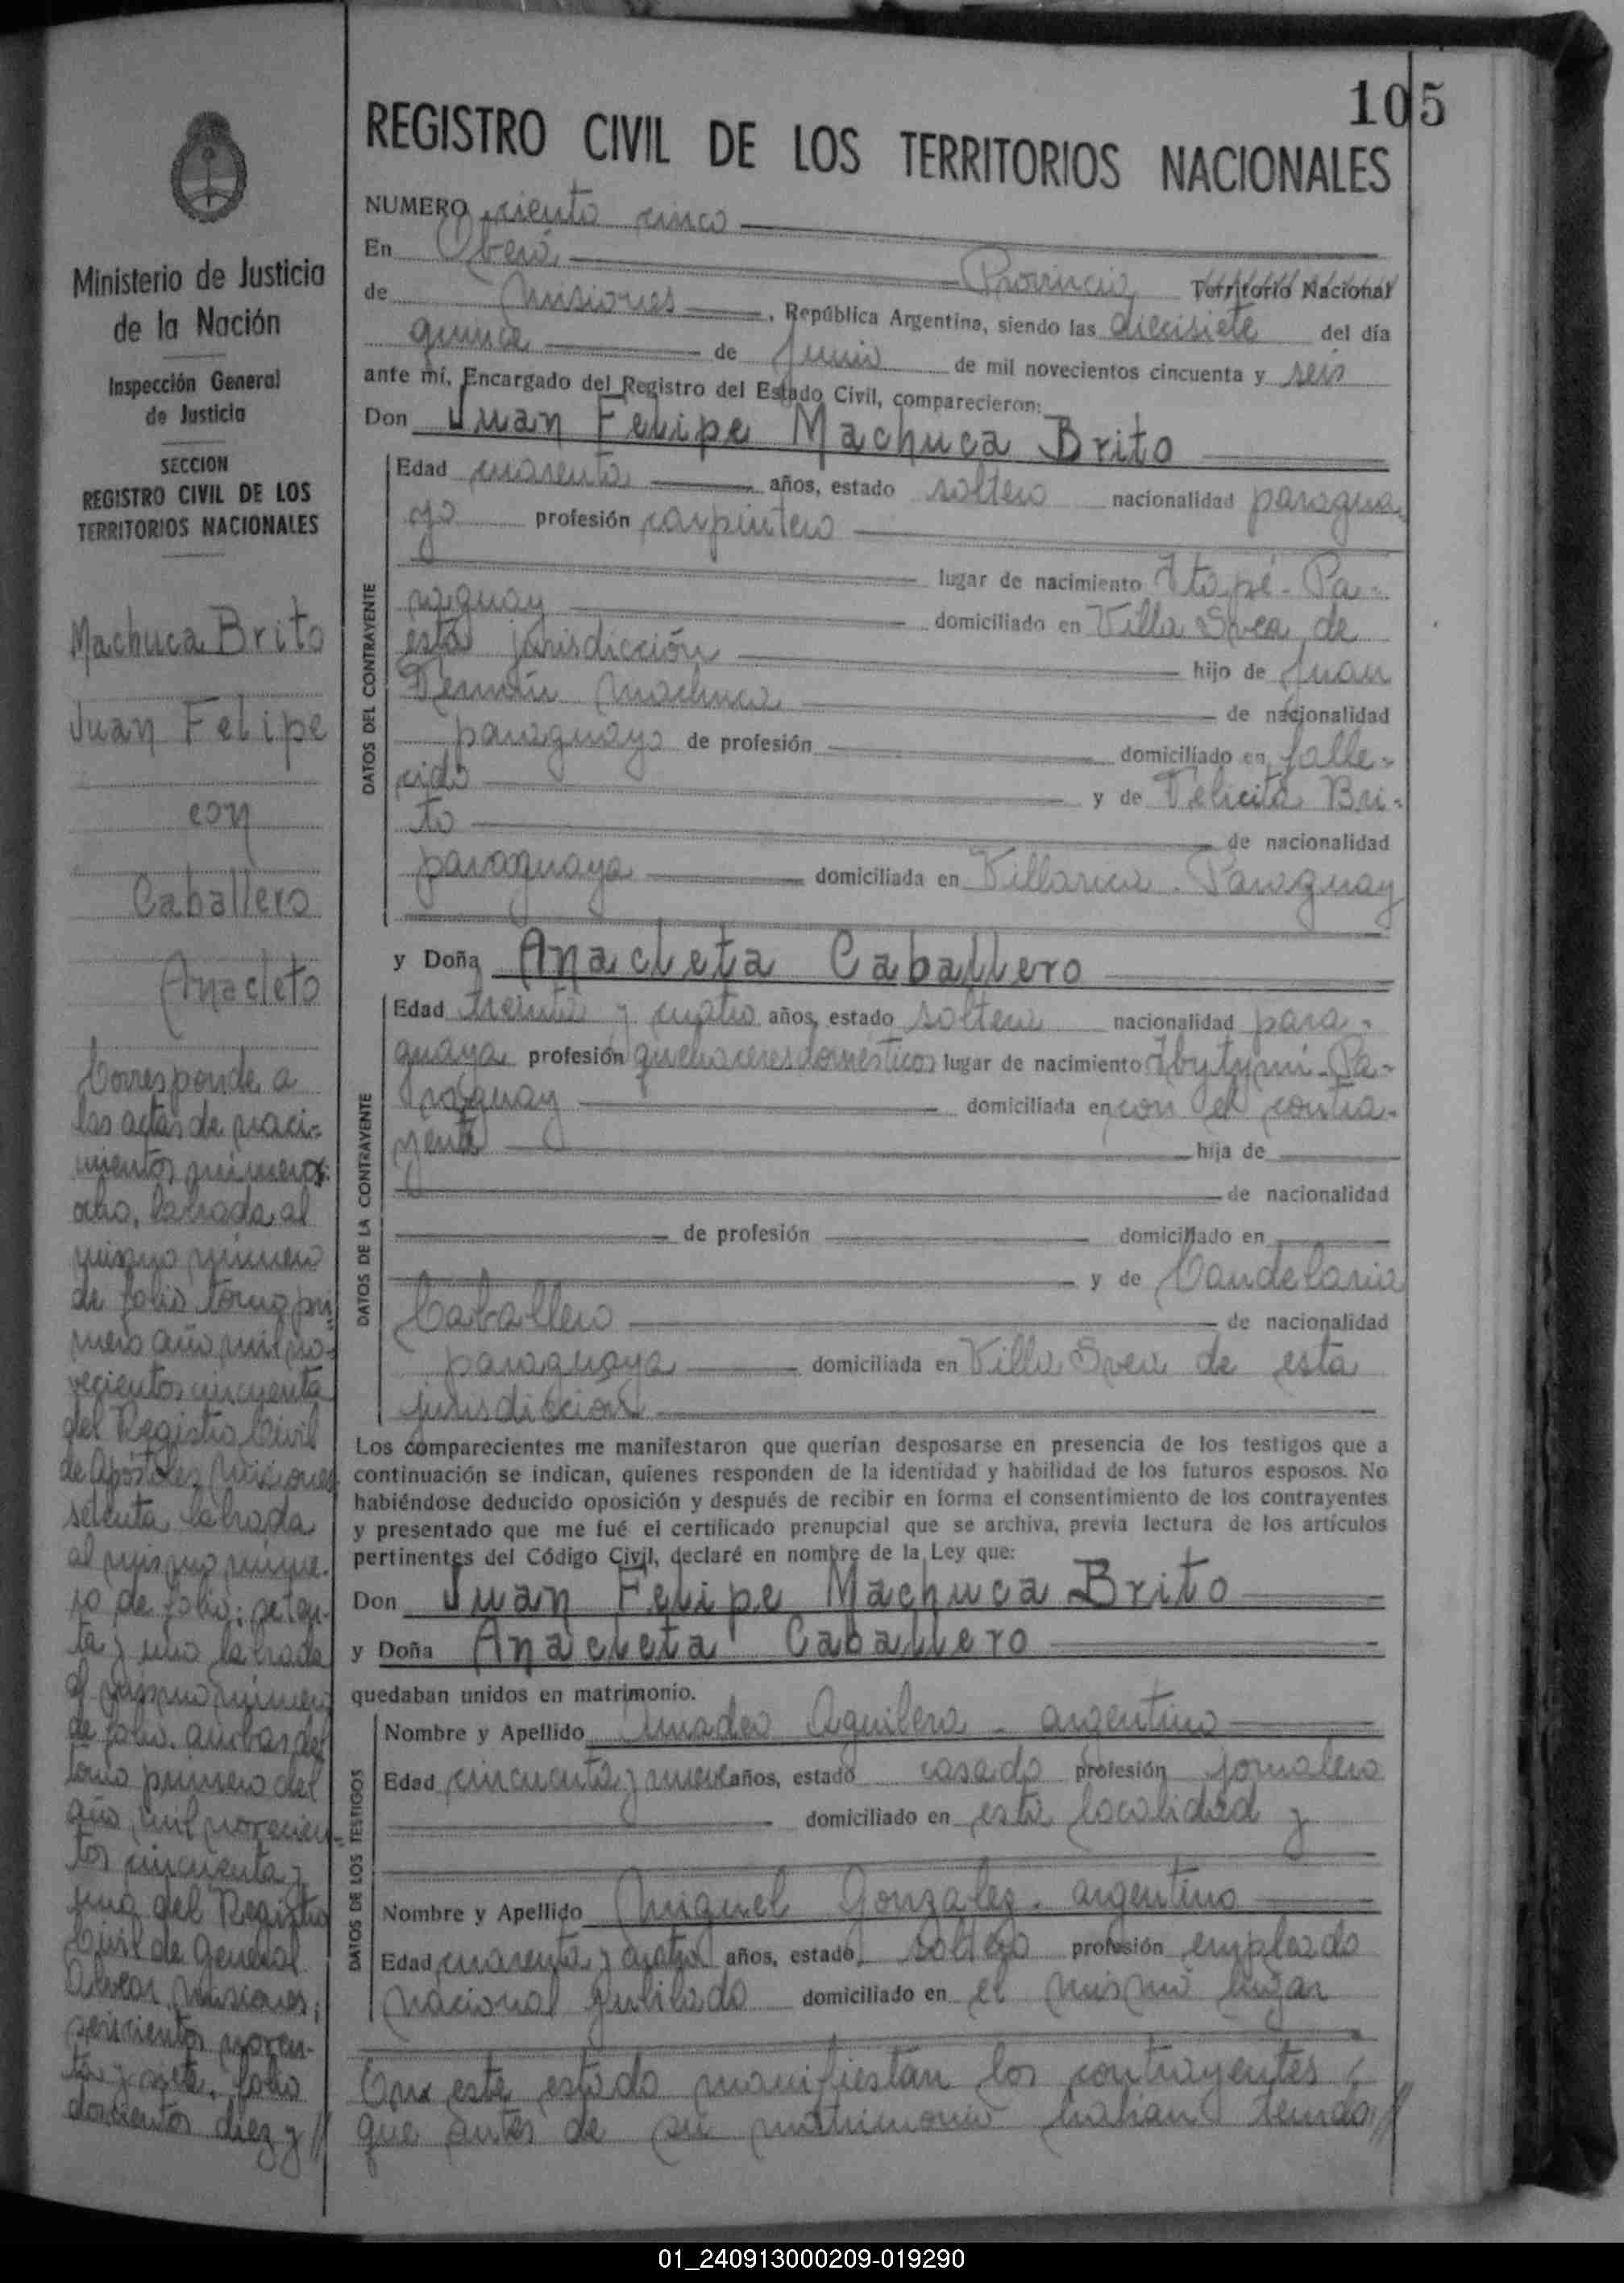 105
REGISTRO CIVIL DE LOS TERRITORIOS NACIONALES
NUMERO ciento cinco
En Oberá Provincia Territorio Nacional
de Misiones, República Argentina, siendo las diecisiete del día
quince de Junio de mil novecientos cincuenta y seis
ante mí, Encargado del Registro del Estado Civil, comparecieron:
Don Juan Felipe Machuca Brito
DATOS DEL CONTRAYENTE
Edad cuarenta años, estado soltero nacionalidad paragua-
yo profesión carpintero
lugar de nacimiento Itapé - Pa-
raguay domiciliado en Villa Svea de
esta jurisdicción hijo de Juan
Fermín Machuca de nacionalidad
paraguayo de profesión domiciliado en falle-
cido y de Felicita Bri-
to de nacionalidad
paraguaya domiciliada en Villarica - Paraguay
y Doña Anacleta Caballero
DATOS DE LA CONTRAYENTE
Edad treinta y cuatro años, estado soltera nacionalidad para-
guaya profesión quehaceres domésticos lugar de nacimiento Ibytymi - Pa-
raguay domiciliada en con el contra-
yente hija de
de nacionalidad
de profesión domiciliado en
y de Candelaria
Caballero de nacionalidad
paraguaya domiciliada en Villa Svea de esta
jurisdicción
Los comparecientes me manifestaron que querían desposarse en presencia de los testigos que a
continuación se indican, quienes responden de la identidad y habilidad de los futuros esposos. No
habiéndose deducido oposición y después de recibir en forma el consentimiento de los contrayentes
y presentado que me fué el certificado prenupcial que se archiva, previa lectura de los artículos
pertinentes del Código Civil, declaré en nombre de la Ley que:
Don Juan Felipe Machuca Brito
y Doña Anacleta Caballero
quedaban unidos en matrimonio.
DATOS DE LOS TESTIGOS
Nombre y Apellido Amadeo Aguilera - argentino
Edad cincuenta y nueve años, estado casado profesión jornalero
domiciliado en esta localidad y
Nombre y Apellido Miguel Gonzalez - argentino
Edad cuarenta y cuatro años, estado soltero profesión empleado
nacional jubilado domiciliado en el mismo lugar
este estado manifiestan los contrayentes
que antes de su matrimonio habian tenido //
Ministerio de Justicia
de la Nación
Inspección General
de Justicia
SECCION
REGISTRO CIVIL DE LOS
TERRITORIOS NACIONALES
Machuca Brito
Juan Felipe
con
Caballero
Anacleto
Corresponde a
las actas de naci-
mientos números:
ocho, labrada al
mismo número
de folio tomo pri
mero año mil no-
vecientos cincuenta
del Registro Civil
de Apóstoles, Misiones
setenta labrada
al mismo núme-
ro de folio; seten-
ta y uno labrada
al mismo número
de folio, ambas del
tomo primero del
año mil novecien-
tos cincuenta y
uno del Registro
Civil de General
Alvear, Misiones;
seiscientos noven-
ta y siete, folio
doscientos diez y //
01_240913000209-019290